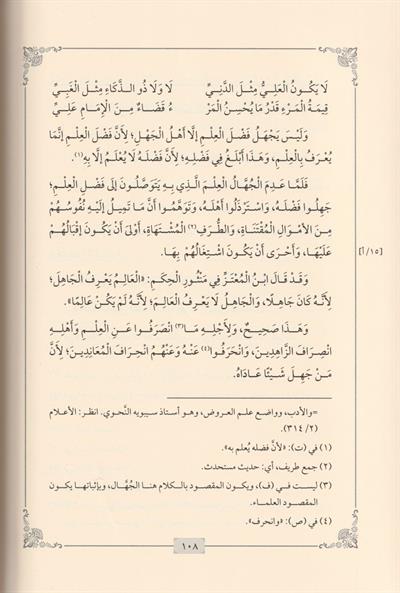 لَا يَكُونُ الْعَلِيُّ مِثْلَ الدَّنِيِّ لَا وَلَا ذُو الذَّكَاءِ مِثْلَ الْغَبِيِّ
قِيمَةُ الْمَرْءِ قَدْرُ مَا يُحْسِنُ الْمَرْ ءُ قَضَاءٌ مِنَ الْإِمَامِ عَلِيِّ
وَلَيْسَ يَجْهَلُ فَضْلَ الْعِلْمِ إِلَّا أَهْلُ الْجَهْلِ؛ لِأَنَّ فَضْلَ الْعِلْمِ إِنَّمَا
يُعْرَفُ بِالْعِلْمِ، وَهَذَا أَبْلَغُ فِي فَضْلِهِ؛ لِأَنَّ فَضْلَهُ لَا يُعْلَمُ إِلَّا بِهِ(١).
فَلَمَّا عَدِمَ الْجُهَّالُ الْعِلْمَ الَّذِي بِهِ يَتَوَصَّلُونَ إِلَى فَضْلِ الْعِلْمِ؛
جَهِلُوا فَضْلَهُ، وَاسْتَرْذَلُوا أَهْلَهُ، وَتَوَهَّمُوا أَنَّ مَا تَمِيلُ إِلَيْهِ نُفُوسُهُمْ
مِنَ الْأَمْوَالِ الْمُقْتَنَاةِ، وَالطُّرَفِ(٢) الْمُشْتَهَاةِ، أَوْلَى أَنْ يَكُونَ إِقْبَالُهُمْ
[١٥/أ]
عَلَيْهَا، وَأَحْرَى أَنْ يَكُونَ اشْتِغَالُهُمْ بِهَا.
وَقَدْ قَالَ ابْنُ الْمُعْتَزِّ فِي مَنْثُورِ الْحِكَمِ: «الْعَالِمُ يَعْرِفُ الْجَاهِلَ؛
لِأَنَّهُ كَانَ جَاهِلًا، وَالْجَاهِلُ لَا يَعْرِفُ الْعَالِمَ؛ لِأَنَّهُ لَمْ يَكُنْ عَالِمًا».
وَهَذَا صَحِيحٌ، وَلِأَجْلِهِ مَا(٣) انْصَرَفُوا عَنِ الْعِلْمِ وَأَهْلِهِ
انْصِرَافَ الزَّاهِدِينَ، وَانْحَرَفُوا(٤) عَنْهُ وَعَنْهُمُ انْحِرَافَ الْمُعَانِدِينَ؛ لِأَنَّ
مَنْ جَهِلَ شَيْئًا عَادَاهُ.
=والأدب، وواضع علم العروض، وهو أستاذ سيبويه النَّحوي. انظر: الأعلام
(٢/ ٣١٤).
(١) في (ت): «لأنَّ فضله يُعلم به».
(٢) جمع طريف، أي: حديث مستحدث.
(٣) ليست في (ف)، ويكون المقصود بالكلام هنا الجُهَّال، وبإثباتها يكون
المقصود العلماء.
(٤) في (ص): «وانحرف».
١٠٨